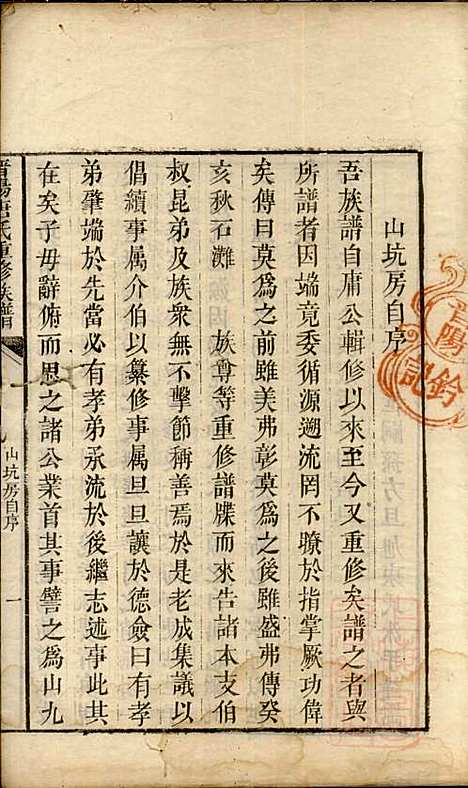 山坑房自序
吾族譜自庸公輯修以來至今又重修矣譜之者與
所譜者因端竟委循源遡流罔不瞭於指掌厥功偉
矣傳曰莫爲之前雖美弗彰莫爲之後雖盛弗傳癸
亥秋石灘 族尊等重修譜牒而來告諸本支伯
叔昆弟及族衆無不擊節稱善焉於是老成集議以
倡續事属介伯以纂修事属旦旦讓於德僉曰有孝
弟肇端於先當必有孝弟承流於後繼志述事此其
在矣子毋辭俯而思之諸公業首其事譬之爲山九
晉陽唐氏重修族譜
山坑房自序
一
晉陽
鈐記